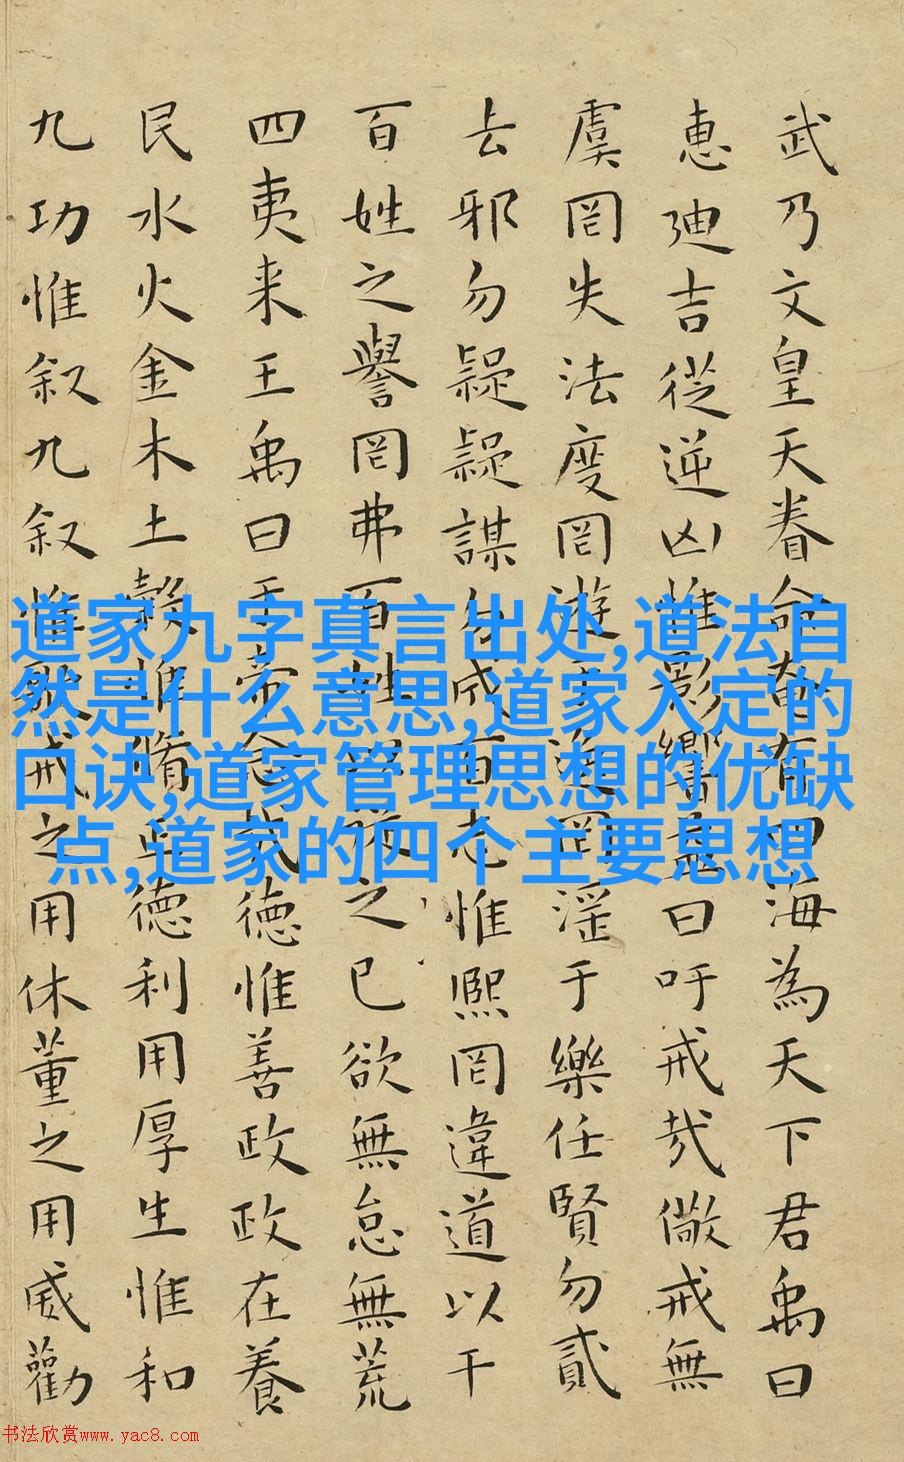 武乃文皇天眷命奄有四海為天下君禹曰
惠廸吉從逆凶惟影響益曰吁戒哉儆戒無
虞罔失法度罔遊于逸罔淫于樂任賢勿貳
去邪勿疑疑謀勿成百志惟熙罔違道以干
百姓之譽罔弗百姓以從之已欲無怠無荒
四夷来王禹曰于帝念哉德惟善政政在養
民水火金木土穀惟脩正德利用厚生惟和
九功惟叙九叙惟歌戒之用休董之用威勸
道家九字真言出处,道法自
然是什么意思,道家入定的
口诀,道家管理思想的优缺
点,道家的四个主要思想
书法欣赏www.yac8.com